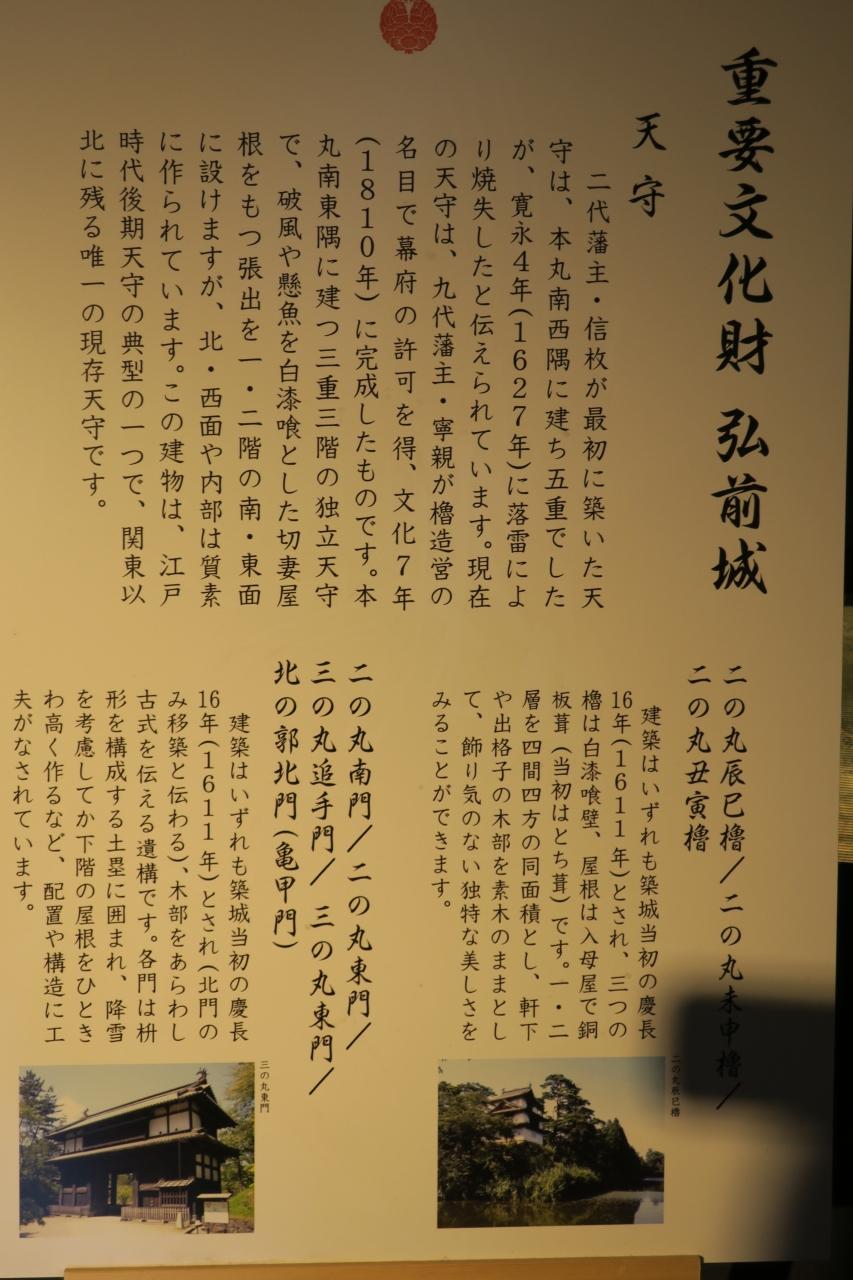 重要文化財 弘前城
天守
二代藩主・信枚が最初に築いた天
守は、本丸南西隅に建ち五重でした
が、寛永4年(1627年)に落雷によ
り焼失したと伝えられています。現在
の天守は、九代藩主・寧親が櫓造営の
名目で幕府の許可を得、文化7年
(1810年)に完成したものです。本
丸南東隅に建つ三重三階の独立天守
で、破風や懸魚を白漆喰とした切妻屋
根をもつ張出を一・二階の南・東面
に設けますが、北・西面や内部は質素
に作られています。この建物は、江戸
時代後期天守の典型の一つで、関東以
北に残る唯一の現存天守です。
二の丸辰巳櫓/二の丸未申櫓/
二の丸丑寅櫓
建築はいずれも築城当初の慶長
16年(1611年)とされ、三つの
櫓は白漆喰壁、屋根は入母屋で銅
板葺(当初はとち葺)です。一・二
層を四間四方の同面積とし、軒下
や出格子の木部を素木のままとし
て、飾り気のない独特な美しさを
みることができます。
二の丸辰巳櫓
二の丸南門/二の丸東門/
三の丸追手門/三の丸東門/
北の郭北門(亀甲門)
建築はいずれも築城当初の慶長
16年(1611年)とされ(北門の
み移築と伝わる)、木部をあらわし
古式を伝える遺構です。各門は枡
形を構成する土塁に囲まれ、降雪
を考慮してか下階の屋根をひとき
わ高く作るなど、配置や構造に工
夫がなされています。
三の丸東門